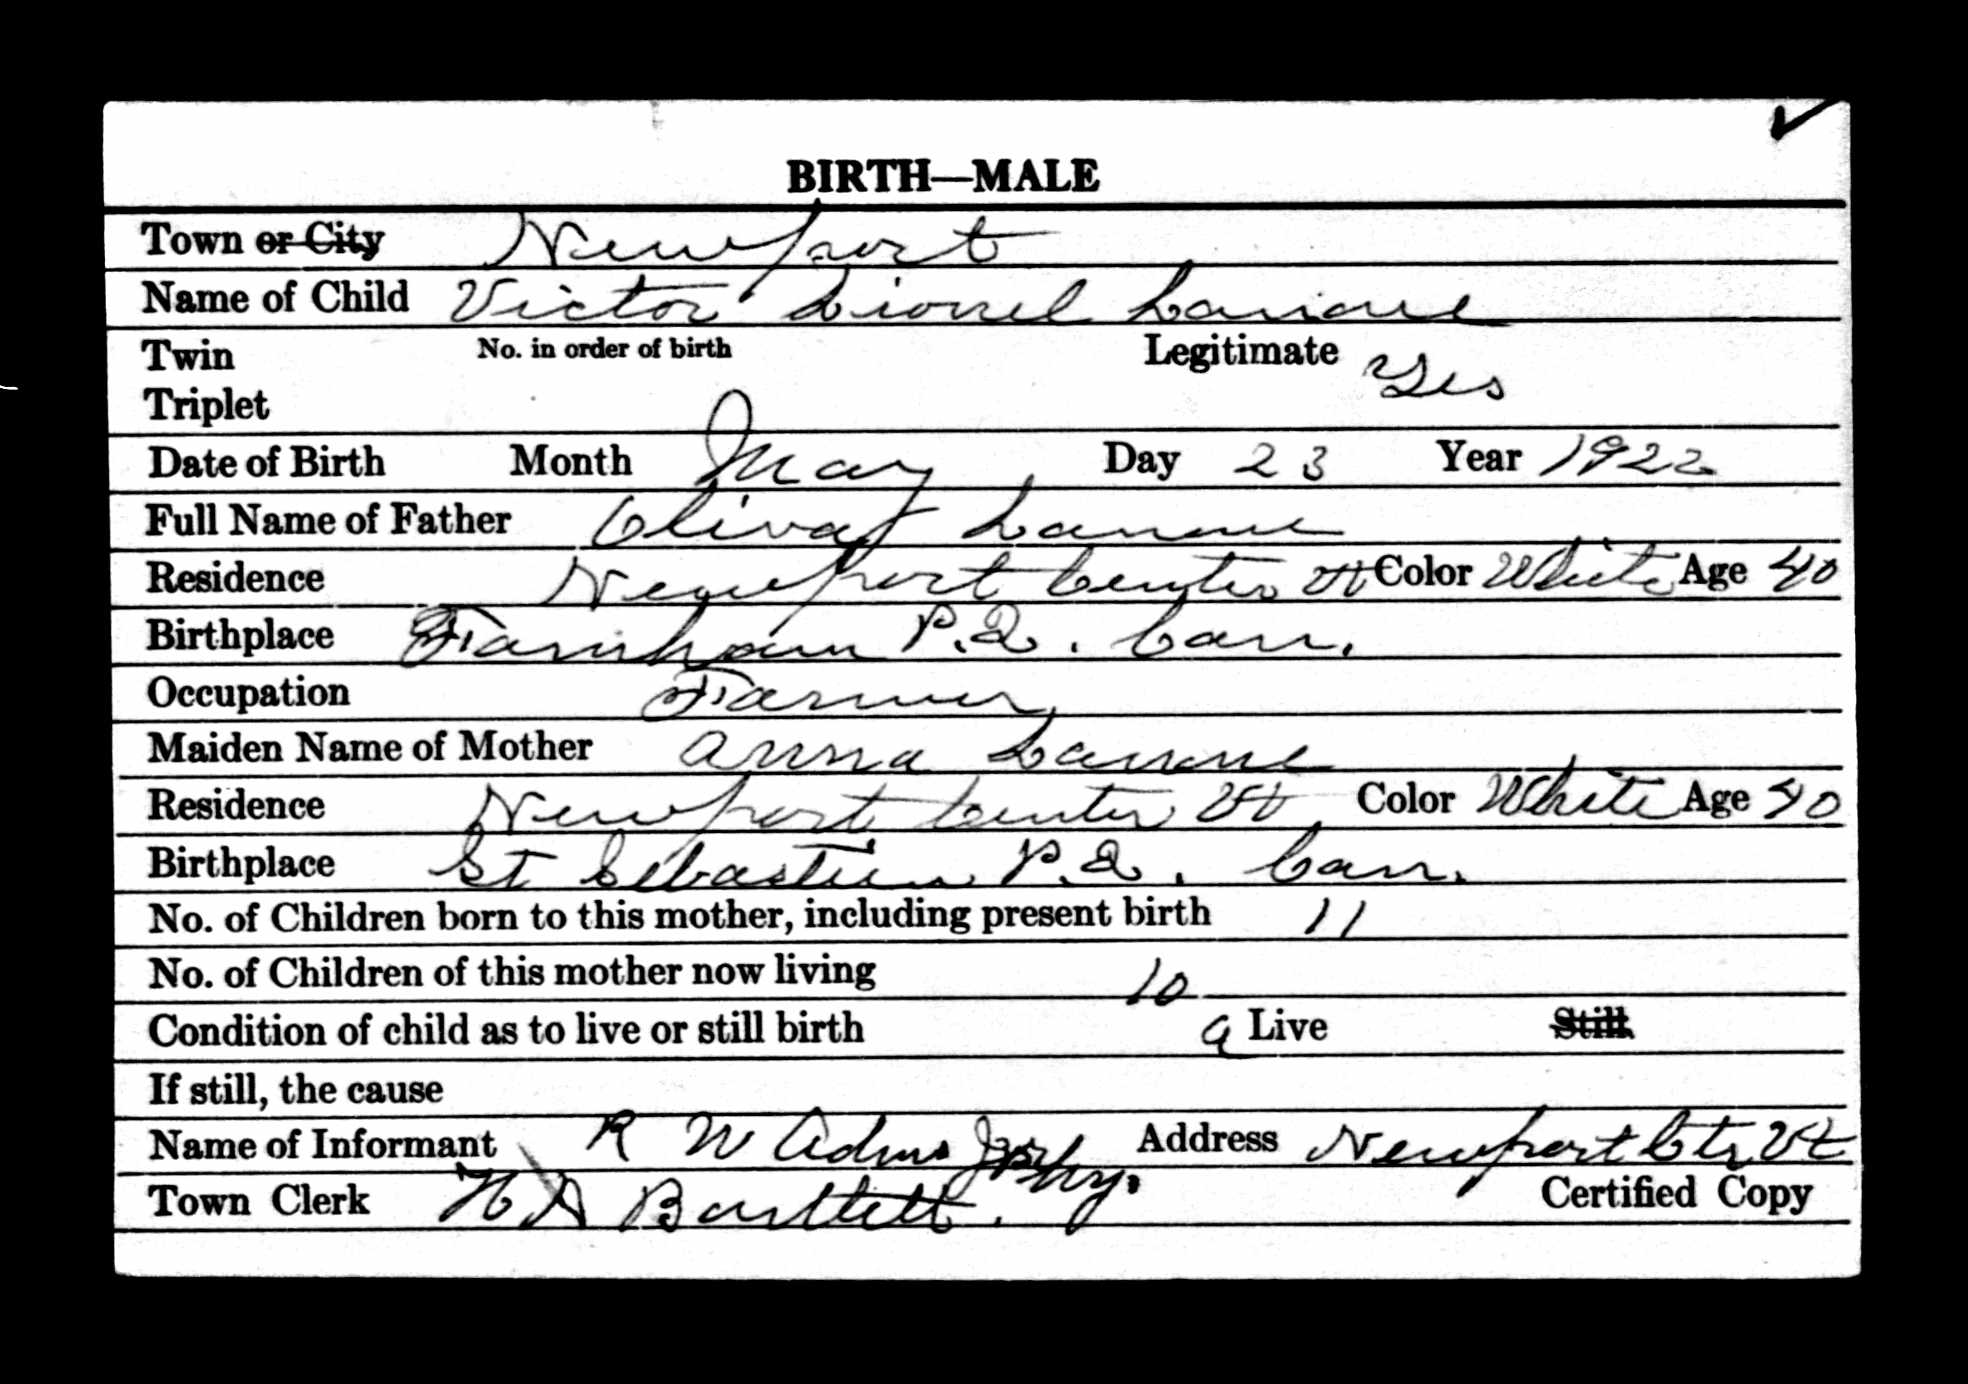 BIRTH—MALE
Town or City Newport
Name of Child Victor Lionel Lanoue
Twin No. in order of birth Legitimate Yes
Triplet
Date of Birth Month May Day 23 Year 1922
Full Name of Father Lanoue
Residence Newport Center Vt Color White Age 40
Birthplace Farnham P.Q. Can.
Occupation Farmer
Maiden Name of Mother Anna Lanoue
Residence Newport Center Vt Color White Age 40
Birthplace St Sebastien P.Q. Can.
No. of Children born to this mother, including present birth 11
No. of Children of this mother now living 10
Condition of child as to live or still birth a Live Still
If still, the cause
Name of Informant R W Adams Address Newport Ctr Vt
Town Clerk Bartlett. Certified Copy